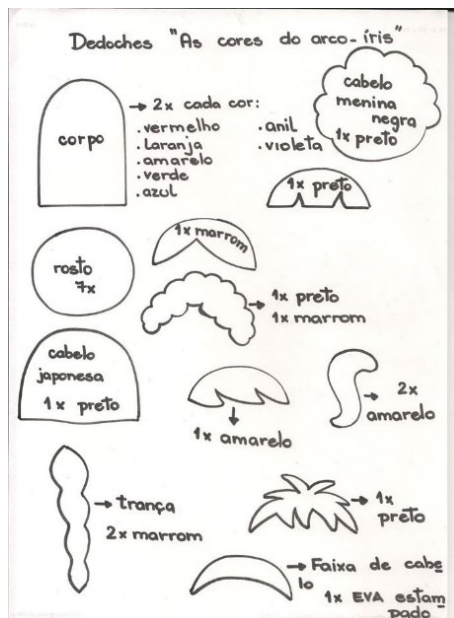 Dedoches "As cores do arco-íris"
corpo
→ 2x cada cor:
.vermelho
.laranja
.amarelo
.verde
.azul
.anil
.violeta
cabelo
menina
negra
1x preto
1x preto
1x marrom
rosto
7x
→ 1x preto
1x marrom
cabelo
japonesa
1x preto
1x amarelo
→ 2x
amarelo
→ trança
2x marrom
→ 1x
preto
→ Faixa de cabe
lo
1x EVA estam
pado